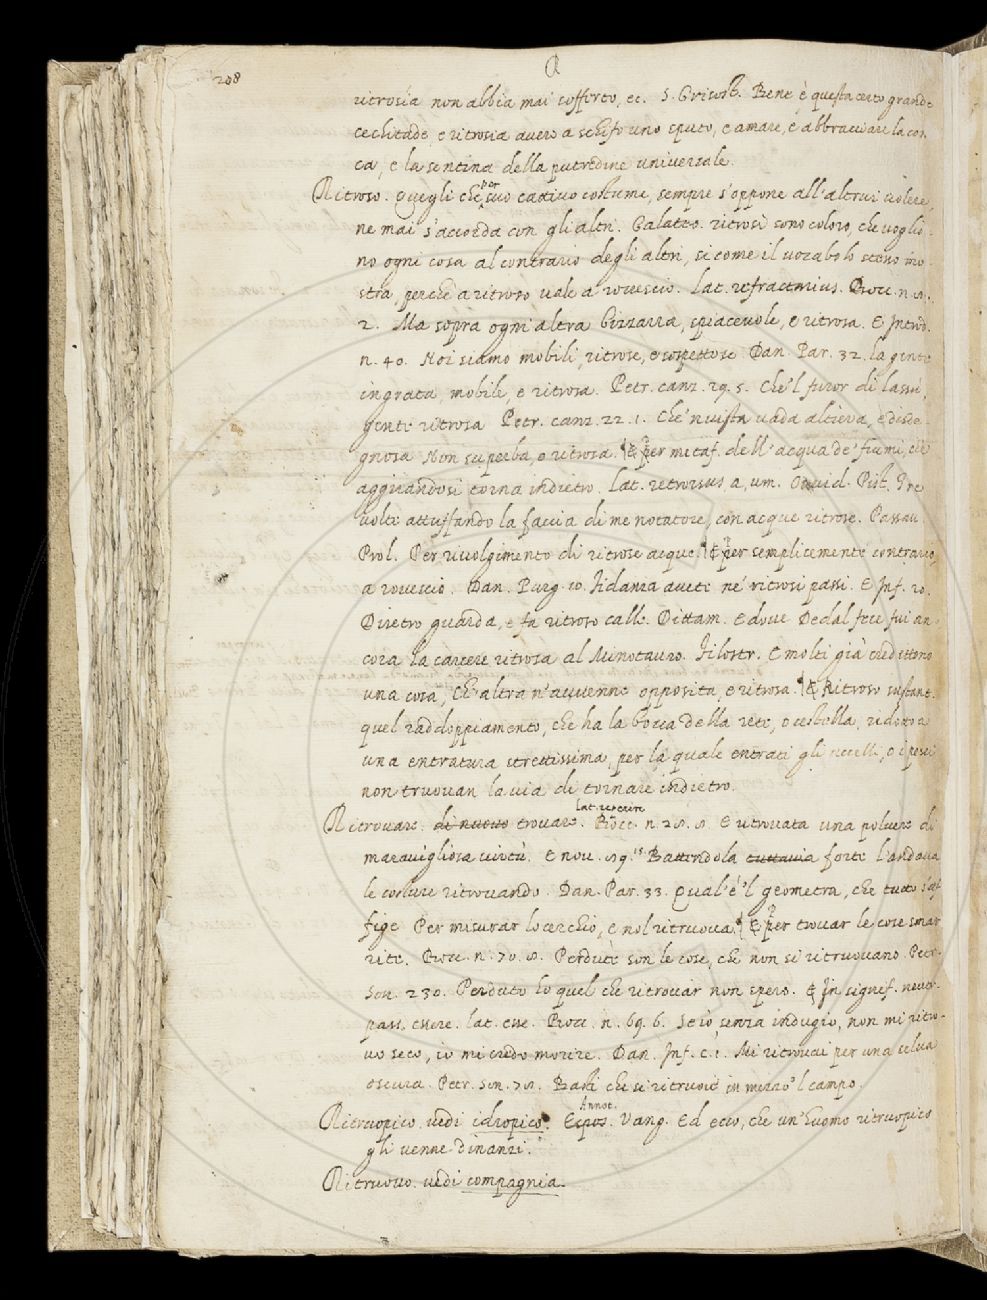 208
R
ritrosía non abbia mai sofferto, ec. S. Grisost. Bene è questa certo grande
cechitade, e ritrosia avere a schifo uno sputo, e amare, e abbracciare la con
ca, e la sentina della putredine universale.
Ritroso. Quegli che per suo cattivo costume, sempre s'oppone all'altrui volere,
ne mai s'accorda con gli altri. Galateo. ritrosi sono coloro, che voglio
no ogni cosa al contrario degli altri, si come il vocabolo stesso mo
stra, perchè a ritroso vale a rovescio. Lat. refractarius. Bocc. n.
2. Ma sopra ogni altra bizzarra, spiacevole, e ritrosa. E Introd.
n. 40. Noi siamo mobili, ritrose, e sospettose. Dan. Par. 32. la gente
ingrata, mobile, e ritrosa. Petr. canz. 29. 5. Che'l furor di lassù,
gente ritrosa Petr. canz. 22. 1. Che'n vista vada altiera, e disde
gnosa Non superba, e ritrosa. ¶ E per metaf. dell'acqua de' fiumi, che
aggirandosi torna indietro. Lat. retrorsus a, um. Ovvid. Pist. Tre
volte attuffando la faccia di me notatore, con acque ritrose. Passav.
Prol. Per rivolgimento di ritrose acque. ¶ E per semplicemente contrario,
a rovescio. Dan. Purg. 10. Fidanza avete ne' ritrosi passi. E Inf. 20.
Dirietro guarda, e fa ritroso calle. Dittam. E dove Dedal fece fui an
cora la carcere ritrosa al Minotauro. Filostr. E molti già credettono
una cosa, Ch'altra n'avvenne opposita, e ritrosa. ¶ E Ritroso sustant.
quel raddoppiamento, che ha la bocca della rete, o cestella, ridotto a
una entratura strettissima, per la quale entrati gli uccelli, o i pesci
non truovan la via di tornare indietro.
Ritrovare. di nuovo trovare. Lat. reperire Bocc. n. 28. 8 E ritrovata una polvere di
maravigliosa virtù. E nov. 89. 15. Battendola tuttavia forte l'andava
le costure ritrovando. Dan. Par. 33. Qual'è'l geometra, che tutto s'af
fige Per misurar lo cerchio, e nol ritruova. ¶ E per trovar le cose smar
rite. Bocc. n. 70. 8. Perdute son le cose, che non si ritruovano. Petr.
Son. 230. Perduto ho quel che ritrovar non spero. E In signif. neutr.
pass. essere. lat. esse. Bocc. n. 69. 6. Se io, senza indugio, non mi ritro-
vo seco, io mi credo morire. Dan. Inf. c. 1. Mi ritrovai per una selva
oscura. Petr. son. 78. Basti che si ritruovi in mezzo'l campo.
Ritruopico. vedi idropico. Espos. Annot. Vang. Ed ecco, che un' huomo ritruopico
gli venne dinanzi.
Ritruovo. vedi compagnia.